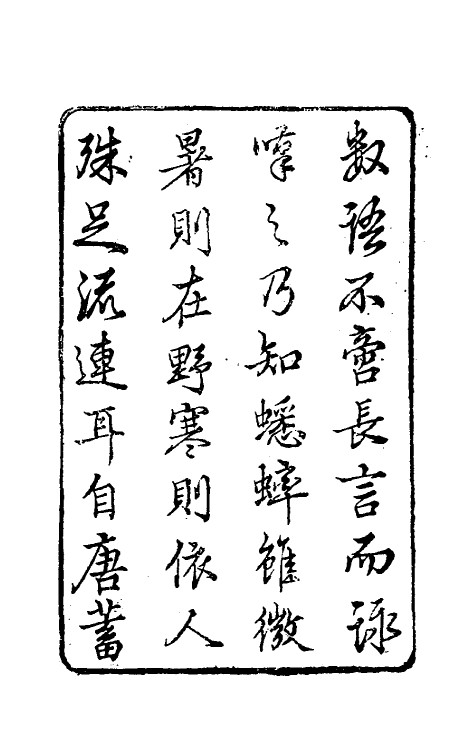 數語不啻長言而詠
嘆之乃知蟋蟀雖微
暑則在野寒則依人
殊足流連耳自唐蓄